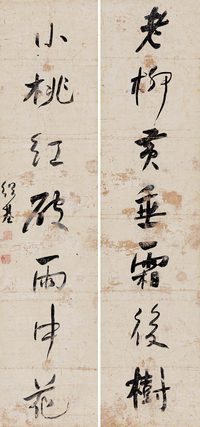 老柳黃垂霜後樹
小桃紅破雨中花
紹基